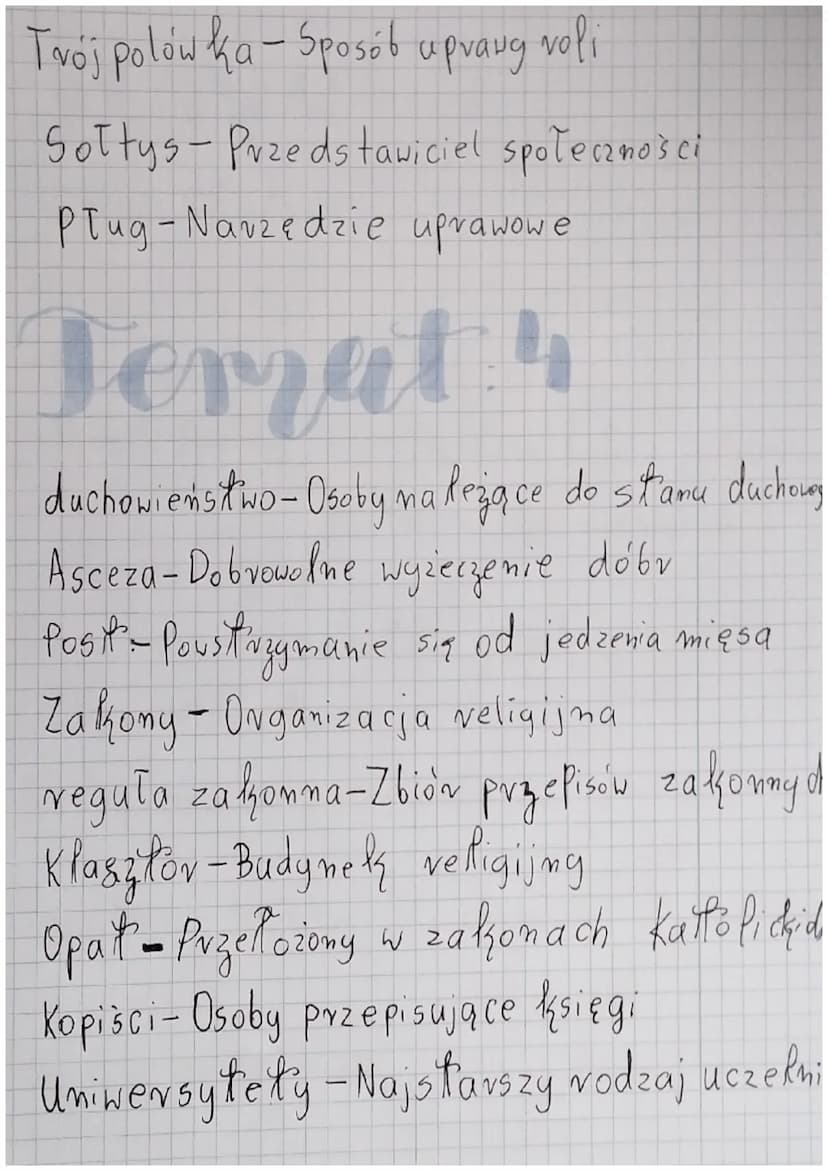 Trójpolówka - Sposób uprawy roli
Sołtys - Przedstawiciel społeczności
Pług - Narzędzie uprawowe
Temat: 4
duchowieństwo - Osoby należące do stanu duchoweg
Asceza - Dobrowolne wyżeczenie dóbr
Post - Powstrzymanie się od jedzenia mięsa
Zakony - Organizacja religijna
reguła zakonna - Zbiór przepisów zakonnych
Klasztor - Budynek religijny
Opat - Przełożony w zakonach Katolickich
Kopiści - Osoby przepisujące księgi
Uniwersytety - Najstarszy rodzaj uczelni